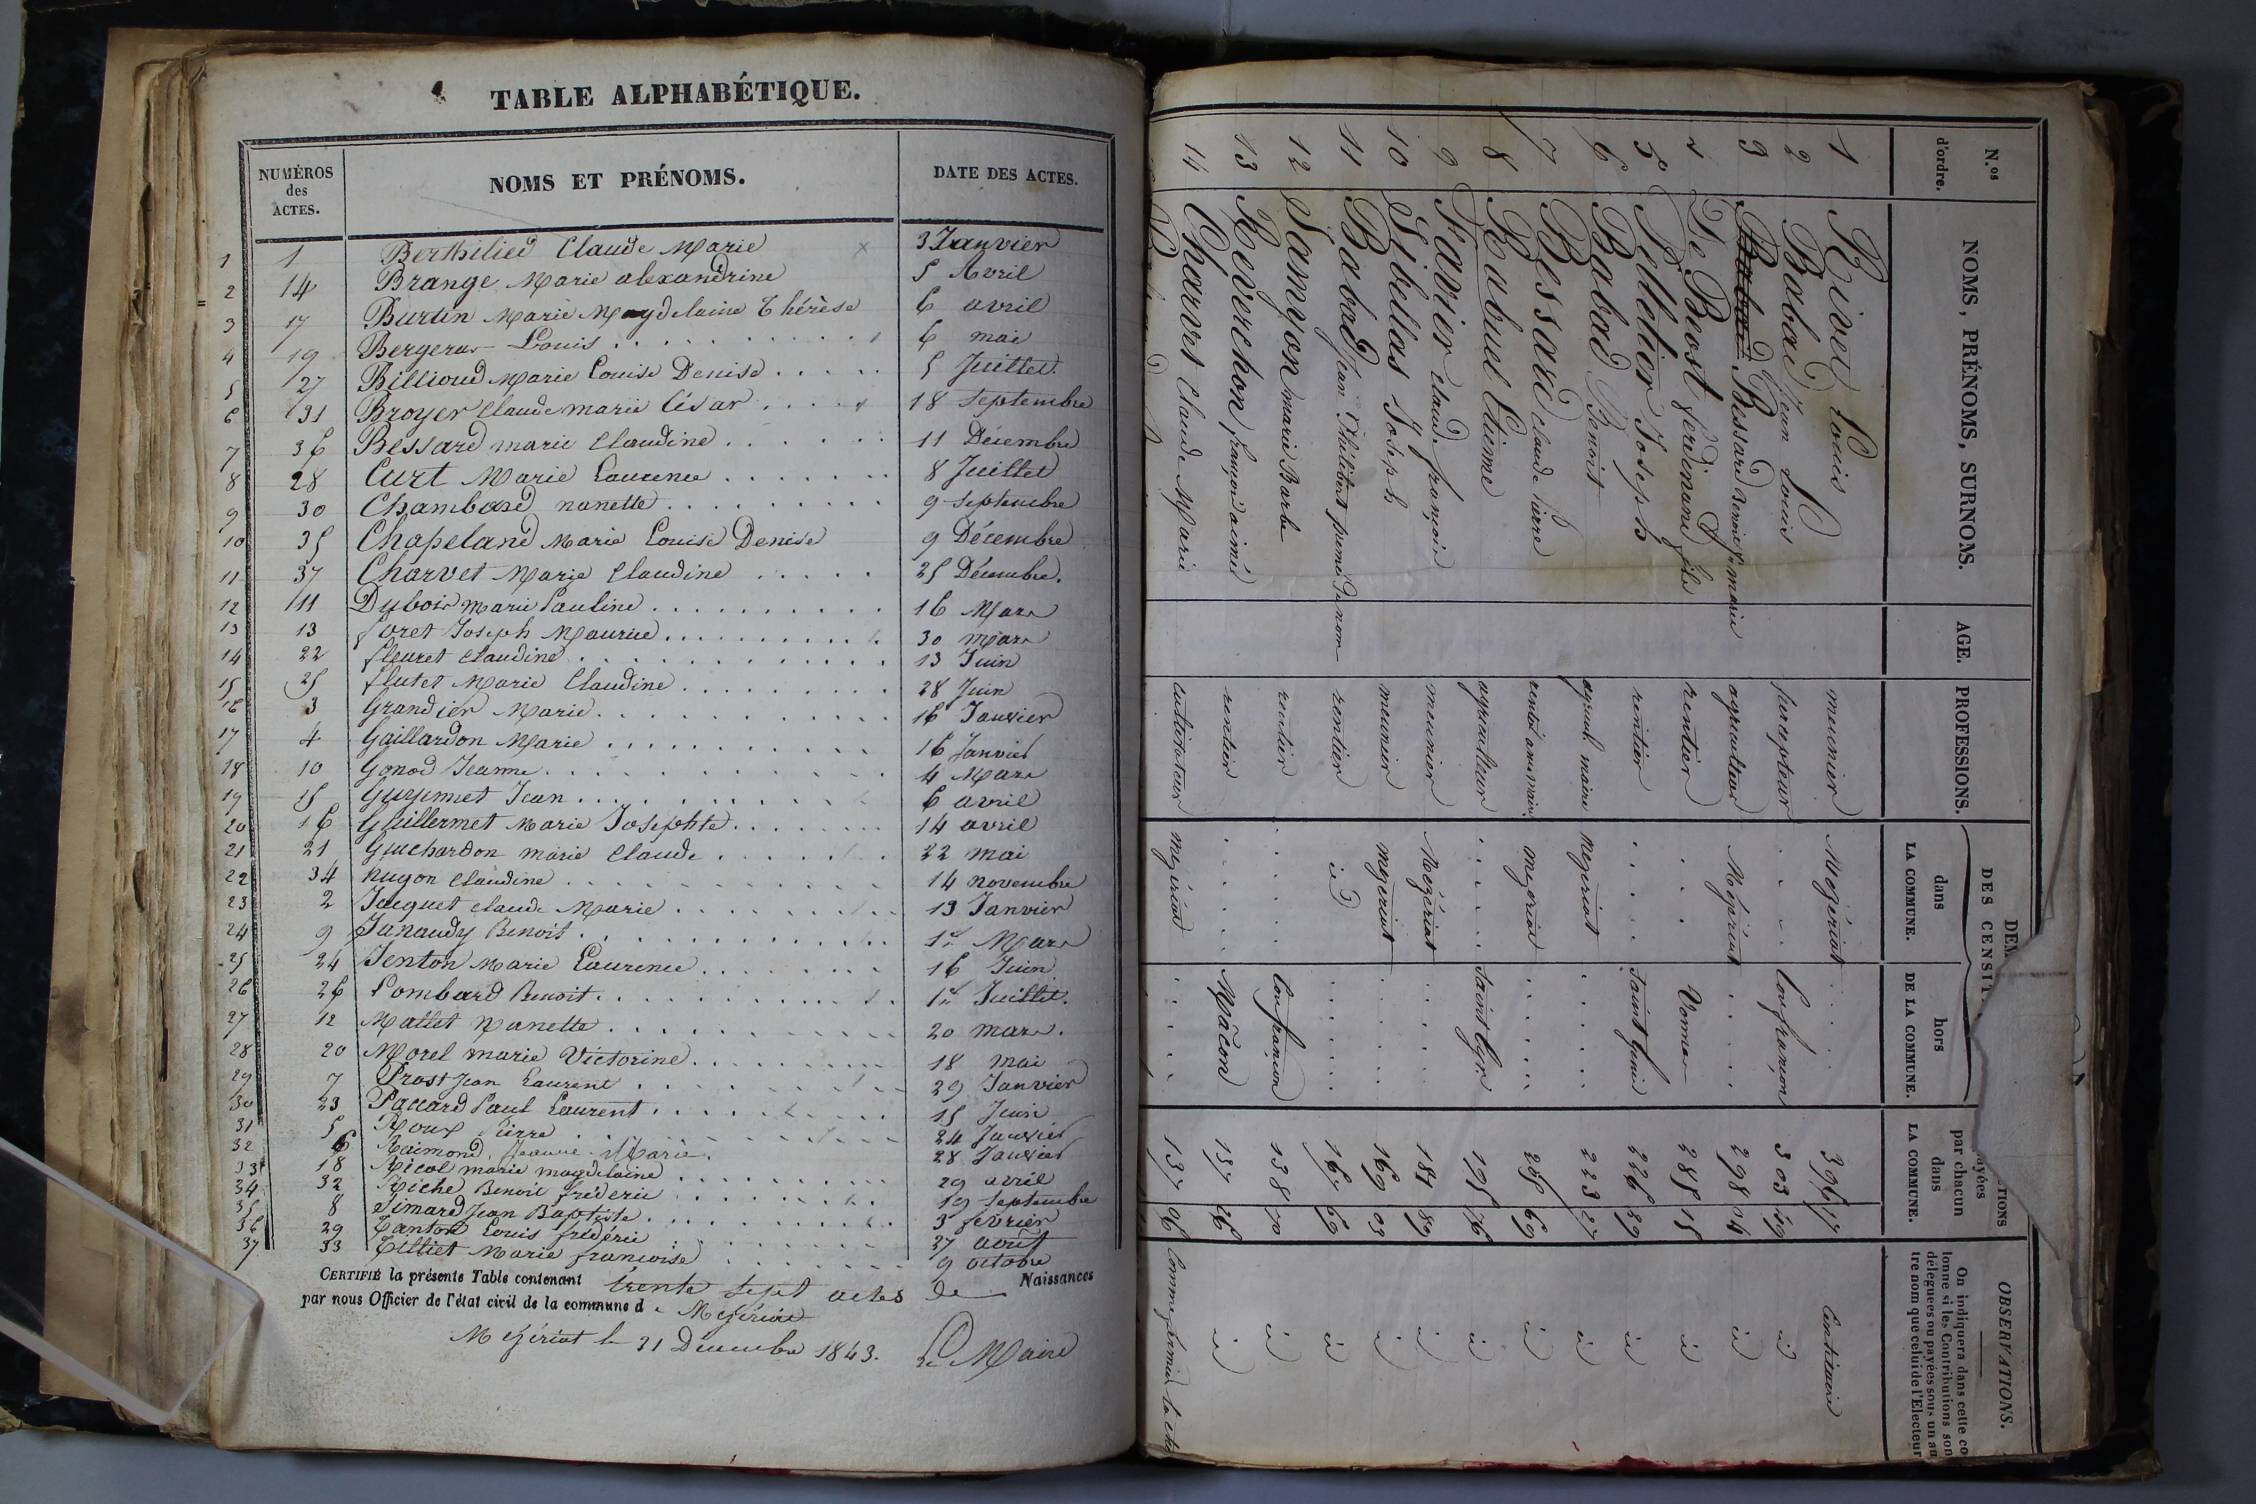 TABLE ALPHABÉTIQUE.
NUMÉROS des ACTES. NOMS ET PRÉNOMS. DATE DES ACTES.
1 1 Berthilied Claude Marie 3 Janvier
2 14 Brange Marie alexandrine 5 Avril
3 17 Burtin Marie Magdelaine Thérèse 6 avril
4 19 Bergeron Louis 6 mai
5 27 Billioud Marie Louise Denise 5 Juillet
6 31 Broyer Claude marie César 18 Septembre
7 36 Bessard marie Claudine 11 Décembre
8 28 Curt Marie Laurence 8 Juillet
9 30 Chambard nanette 9 Septembre
10 35 Chapeland Marie Louise Denise 9 Décembre
11 37 Charvet Marie Claudine 25 Décembre.
12 11 Dubois Marie Pauline 16 Mars
13 13 foret Joseph Maurice 30 mars
14 22 fleuret Claudine 13 Juin
15 25 flutet Marie Claudine 28 Juin
16 3 Grandier Marie 16 Janvier
17 4 Gaillardon Marie 16 Janvier
18 10 Gonod Jeanne 4 Mars
19 15 Guyennet Jean 6 avril
20 16 Guillermet Marie Josephte 14 avril
21 21 Guichardon marie Claude 22 mai
22 34 hugon Claudine 14 novembre
23 2 Jacquet Claude Marie 13 Janvier
24 9 Janaudy Benoit 1er Mars
25 24 Jenton Marie Laurence 16 Juin
26 26 Lombard Benoit 1er Juillet.
27 12 Mallet Nanette 20 mars.
28 20 Morel marie Victorine 18 mai
29 7 Prost Jean Laurent 29 Janvier
30 23 Paccard Paul Laurent 15 Juin
31 5 Roux Pierre 24 Janvier
32 6 Raimond Jeanne Marie 28 Janvier
33 18 Ricol marie magdelaine 29 avril
34 32 Riche Benoit fréderic 19 Septembre
35 8 Simard Jean Baptiste 3 fevrier
36 29 Tanton Louis fréderic 27 août
37 33 Tilliet Marie francoise 9 octobre
CERTIFIÉ la présente Table contenant trente Sept actes de Naissances
par nous Officier de l'état civil de la commune de Mezériat
Mezériat le 31 Décembre 1843. Le Maire
N.os d'ordre. NOMS, PRÉNOMS, SURNOMS. AGE. PROFESSIONS.
DES CENSIT
dans LA COMMUNE. hors DE LA COMMUNE.
payées par chacun dans LA COMMUNE.
OBSERVATIONS.
On indiquera dans cette co
lonne si les Contributions son
déléguées ou payées sous un au
tre nom que celui de l'Electeur
1 Rivet Louis meunier Mezériat 396 17 Censitaire
2 Babad Jean Louis percepteur Confrançon 303 49 id
3 Bessard Benoit f. marie agriculteur Mezériat 298 04 id
4 De Beost ferdinand fils rentier Vonnas 285 15 id
5 Pelletier Joseph rentier Saint Genis 226 39 id
6 Babad Benoit maire Mezeriat 223 27 id
7 Bessard Claude Pierre Mezeriat 69 id
8 Rabuel Etienne agriculteur Saint Cyr 195 76 id
9 favier Claude françois meunier Mezériat 187 89 id
10 Sibellas Joseph meunier Mezeriat 169 03 id
11 Babad Jean Philibert rentier id 167 69 id
12 Samyon marie Barbe rentier Confrançon 138 70 id
13 Reverchon françois aimé rentier Mâcon 137 26 id
14 Charvet Claude Marie cultivateur Mezériat 137 06